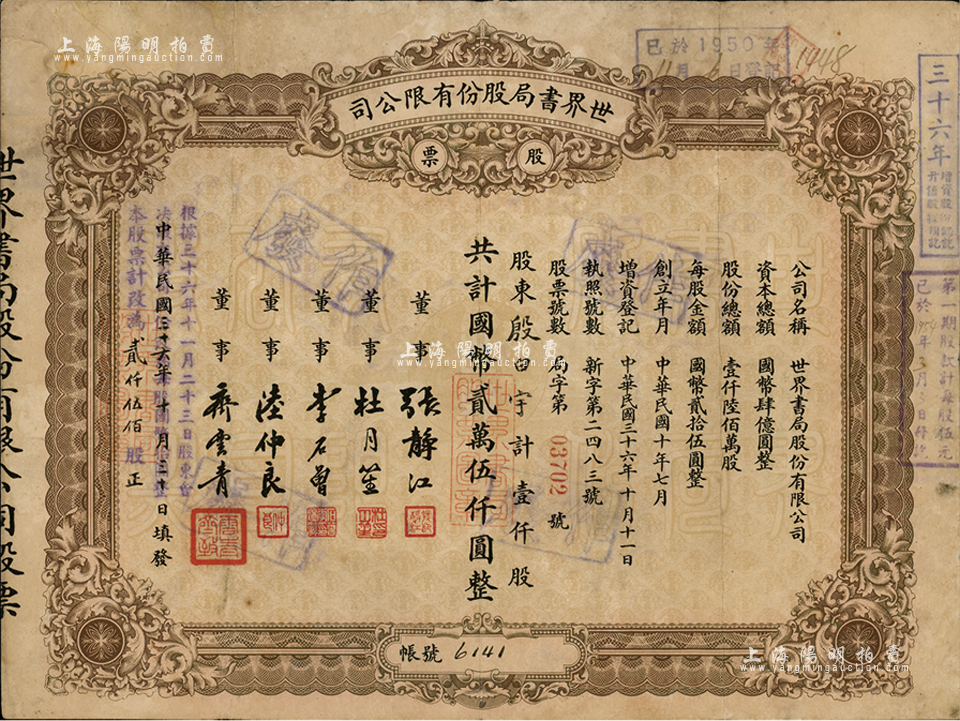 上海陽明拍賣
www.yangmingauction.com
已於1950年
月 日登記
1948
世界書局股份有限公司
股票
三十六年
公司名稱 世界書局股份有限公司
資本總額 國幣肆億圓整
股份總額 壹仟陸佰萬股
每股金額 國幣貳拾伍圓整
創立年月 中華民國十年七月
增資登記 中華民國三十六年十月十一日
執照號數 新字第二四八三號
股票號數 局字第 03702 號
股東 殷 宇 計 壹仟 股
共計國幣貳萬伍仟圓整
董事 張靜江
董事 杜月笙
董事 李石曾
董事 陸仲良
董事 齊雲青
中華民國三十六年十月三十日填發
根據三十六年十一月二十三日股東會
本股票計改為 貳仟伍佰 股正
第一期股款計每股伍元
世界書局股份有限公司股票
帳號 6141
上海陽明拍賣
www.yangmingauction.com
上海陽明拍賣
www.yangmingauction.com